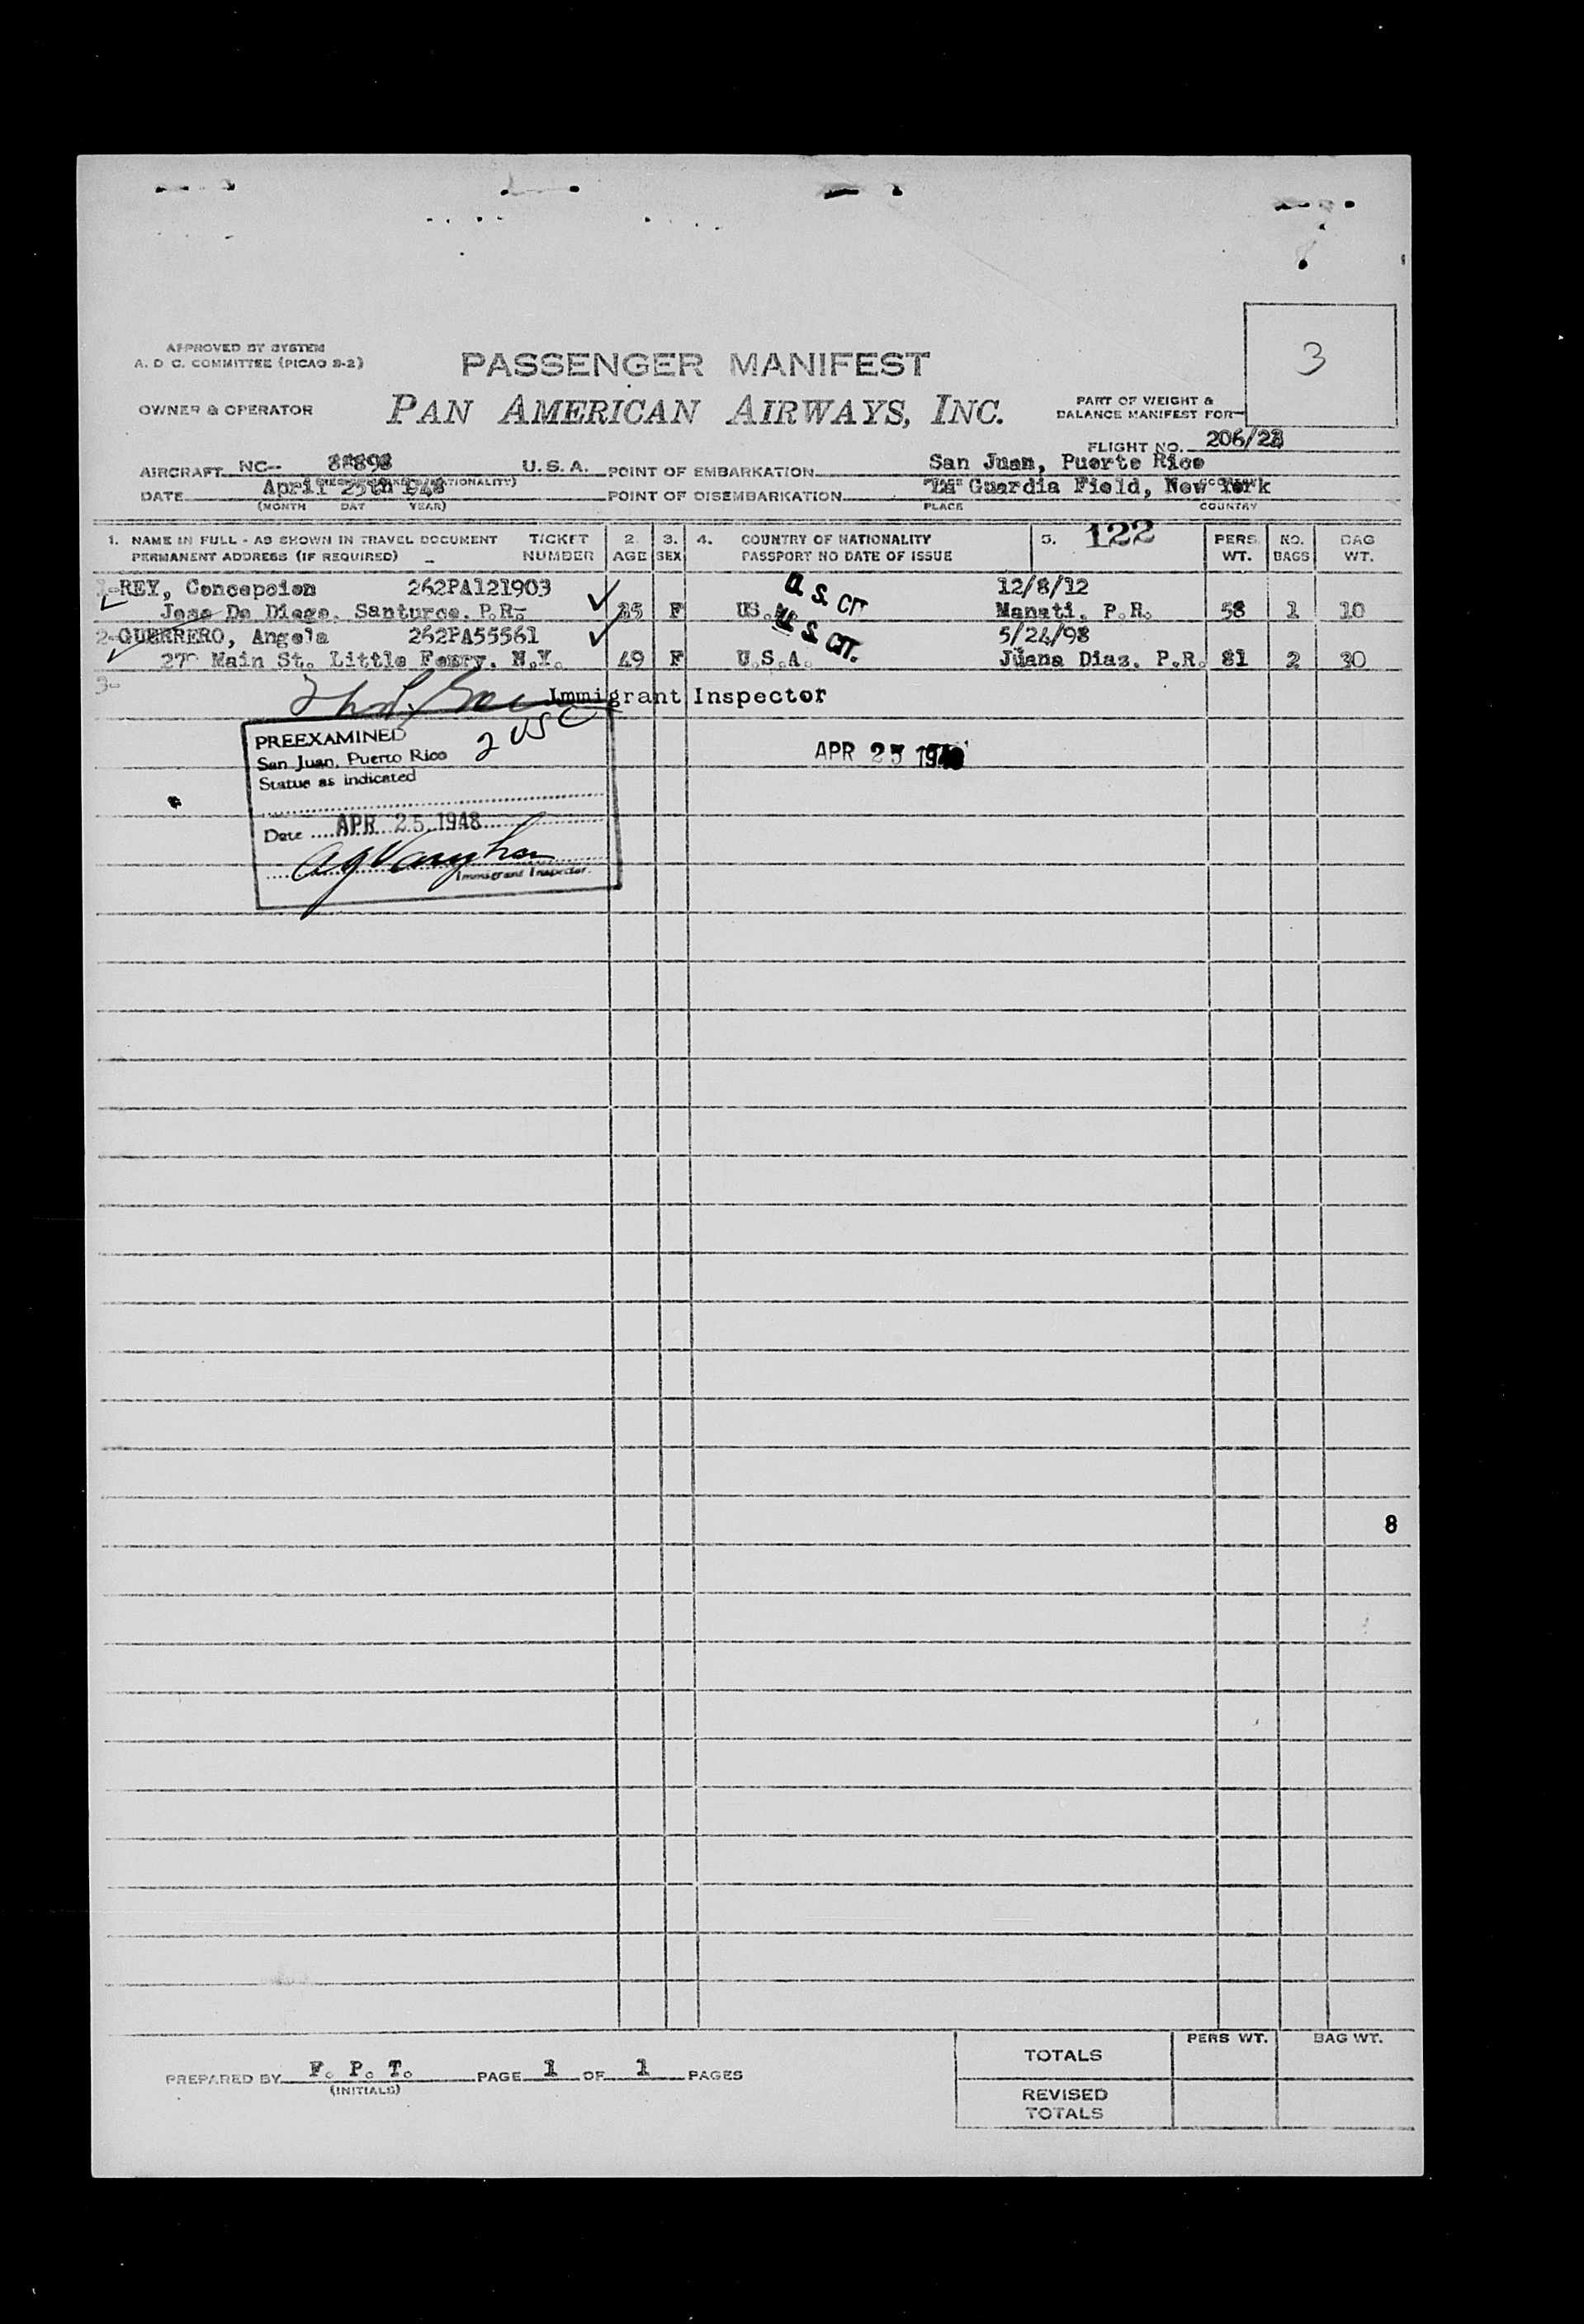 3
APPROVED BY SYSTEM
A. D C. COMMITTEE (PICAO S-2)
PASSENGER MANIFEST
OWNER & OPERATOR
PAN AMERICAN AIRWAYS, INC.
PART OF WEIGHT &
BALANCE MANIFEST FOR
FLIGHT NO. 206/
AIRCRAFT NC-- 88898 U.S.A. POINT OF EMBARKATION San Juan, Puerto Rico
DATE April 25th 1948 POINT OF DISEMBARKATION La Guardia Field, New York
(MONTH DAY YEAR) PLACE COUNTRY
1. NAME IN FULL - AS SHOWN IN TRAVEL DOCUMENT TICKET 2. 3. 4. COUNTRY OF NATIONALITY 5. 122 PERS. NO. BAG
PERMANENT ADDRESS (IF REQUIRED) NUMBER AGE SEX PASSPORT NO DATE OF ISSUE WT. BAGS WT.
1-REY, Concepcion 262PA121903 U. S. CIT 12/8/12
Jose De Diego, Santurce, P.R. 35 F Manati, P.R. 58 1 10
2-GUERRERO, Angela 262PA55561 U. S. CIT. 5/24/98
Main St. Little Ferry, N.Y. 49 F U.S.A. Juana Diaz, P.R. 81 2 30
3-
Immigrant Inspector
2 USC
PREEXAMINED
San Juan, Puerto Rico
Status as indicated
APR 25 1948
Date APR 25 1948
Immigrant Inspector.
8
PREPARED BY F. P. T. PAGE 1 OF 1 PAGES
(INITIALS)
PERS WT. BAG WT.
TOTALS
REVISED
TOTALS